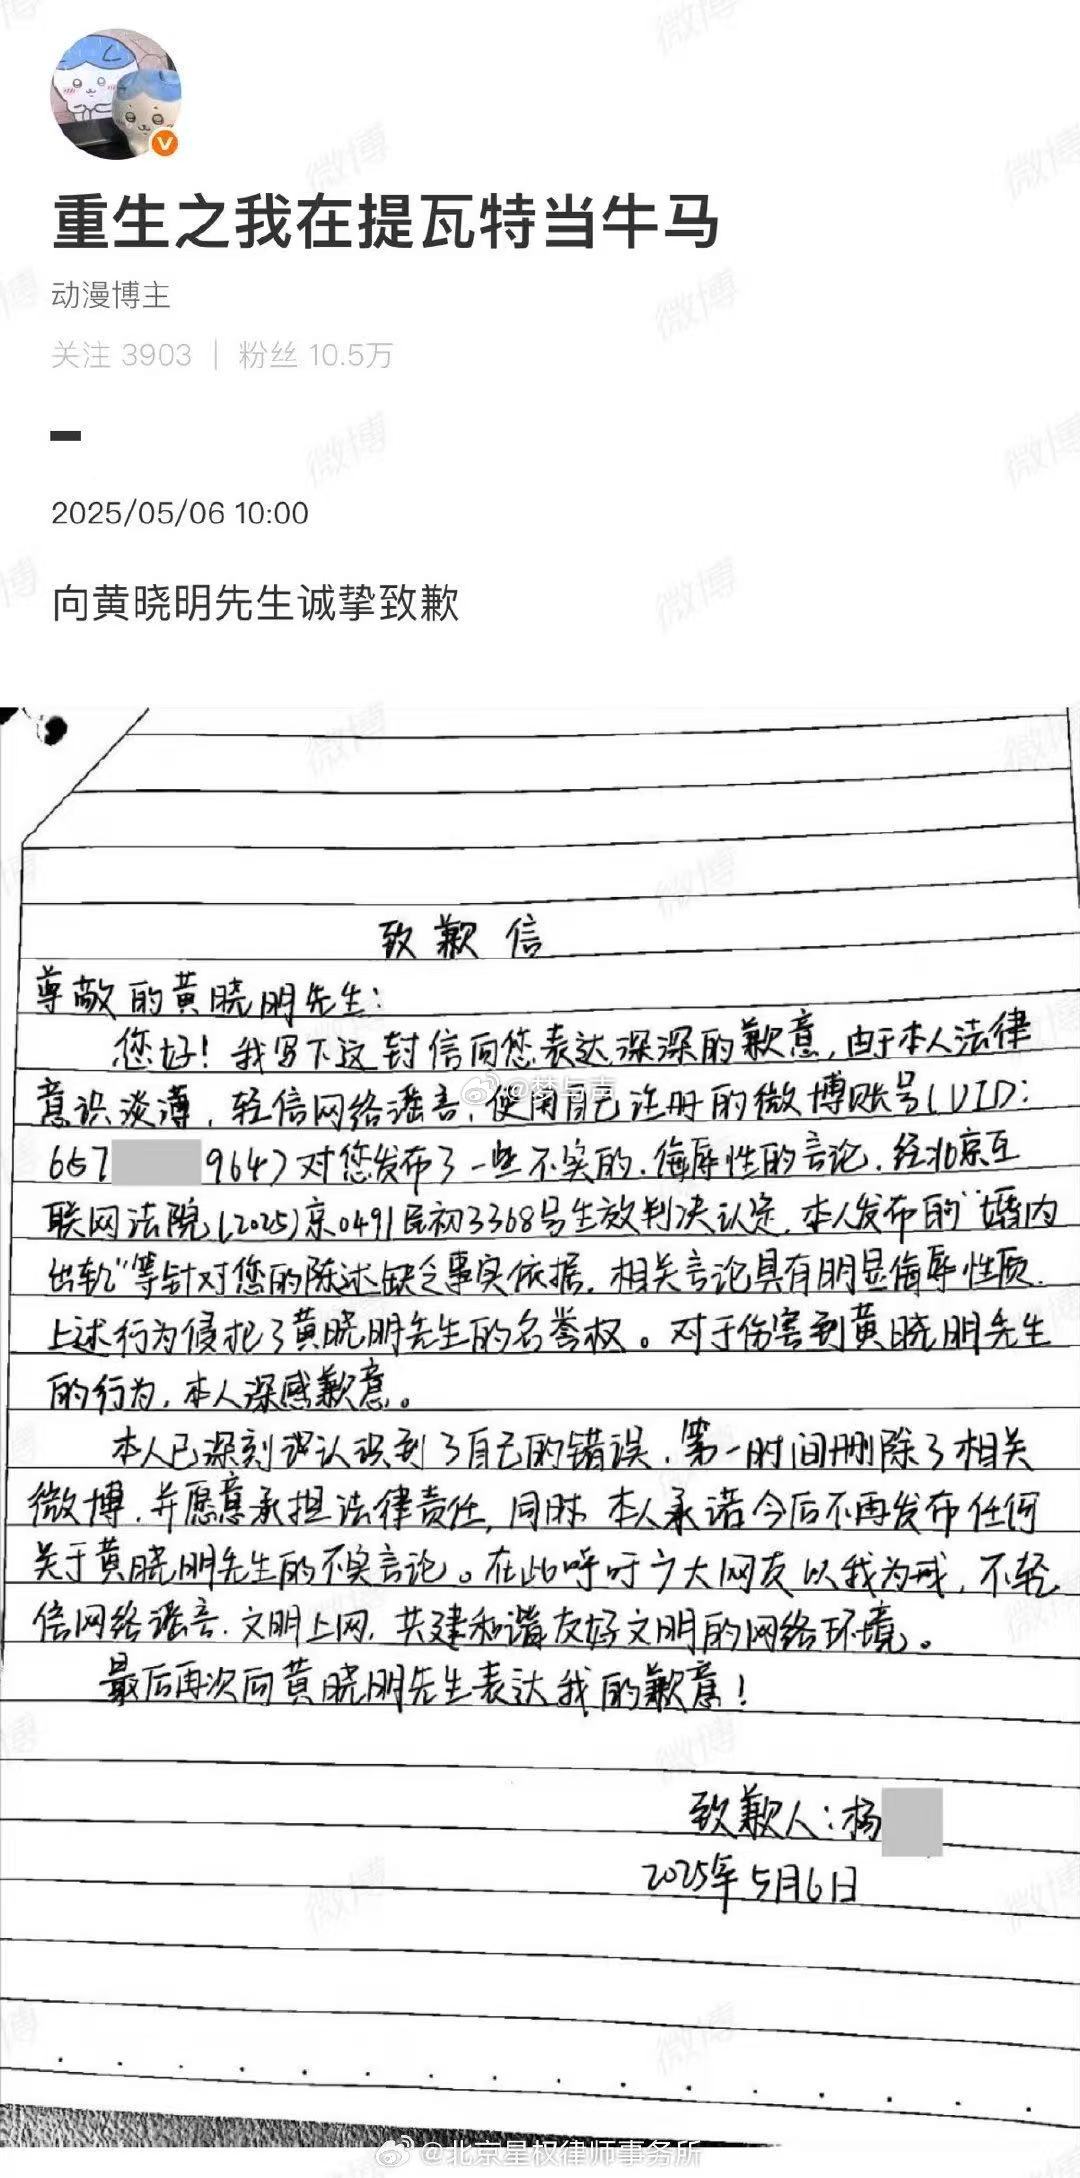 重生之我在提瓦特当牛马
动漫博主
关注 3903 | 粉丝 10.5万
2025/05/06 10:00
向黄晓明先生诚挚致歉
致歉信
尊敬的黄晓明先生：
您好！我写下这封信向您表达深深的歉意，由于本人法律
意识淡薄，轻信网络谣言，使用自己注册的微博账号（UID：
657 9647）对您发布了一些不实的、侮辱性的言论，经北京互
联网法院（2025）京0491民初3368号生效判决认定，本人发布的“婚内
出轨”等针对您的陈述缺乏事实依据，相关言论具有明显侮辱性质，
上述行为侵犯了黄晓明先生的名誉权。对于伤害到黄晓明先生
的行为，本人深感歉意。
本人已深刻认识到了自己的错误，第一时间删除了相关
微博，并愿意承担法律责任，同时，本人承诺今后不再发布任何
关于黄晓明先生的不实言论。在此呼吁广大网友以我为戒，不轻
信网络谣言，文明上网，共建和谐友好文明的网络环境。
最后再次向黄晓明先生表达我的歉意！
致歉人：杨
2025年5月6日
@梦与声
@北京星权律师事务所
微博